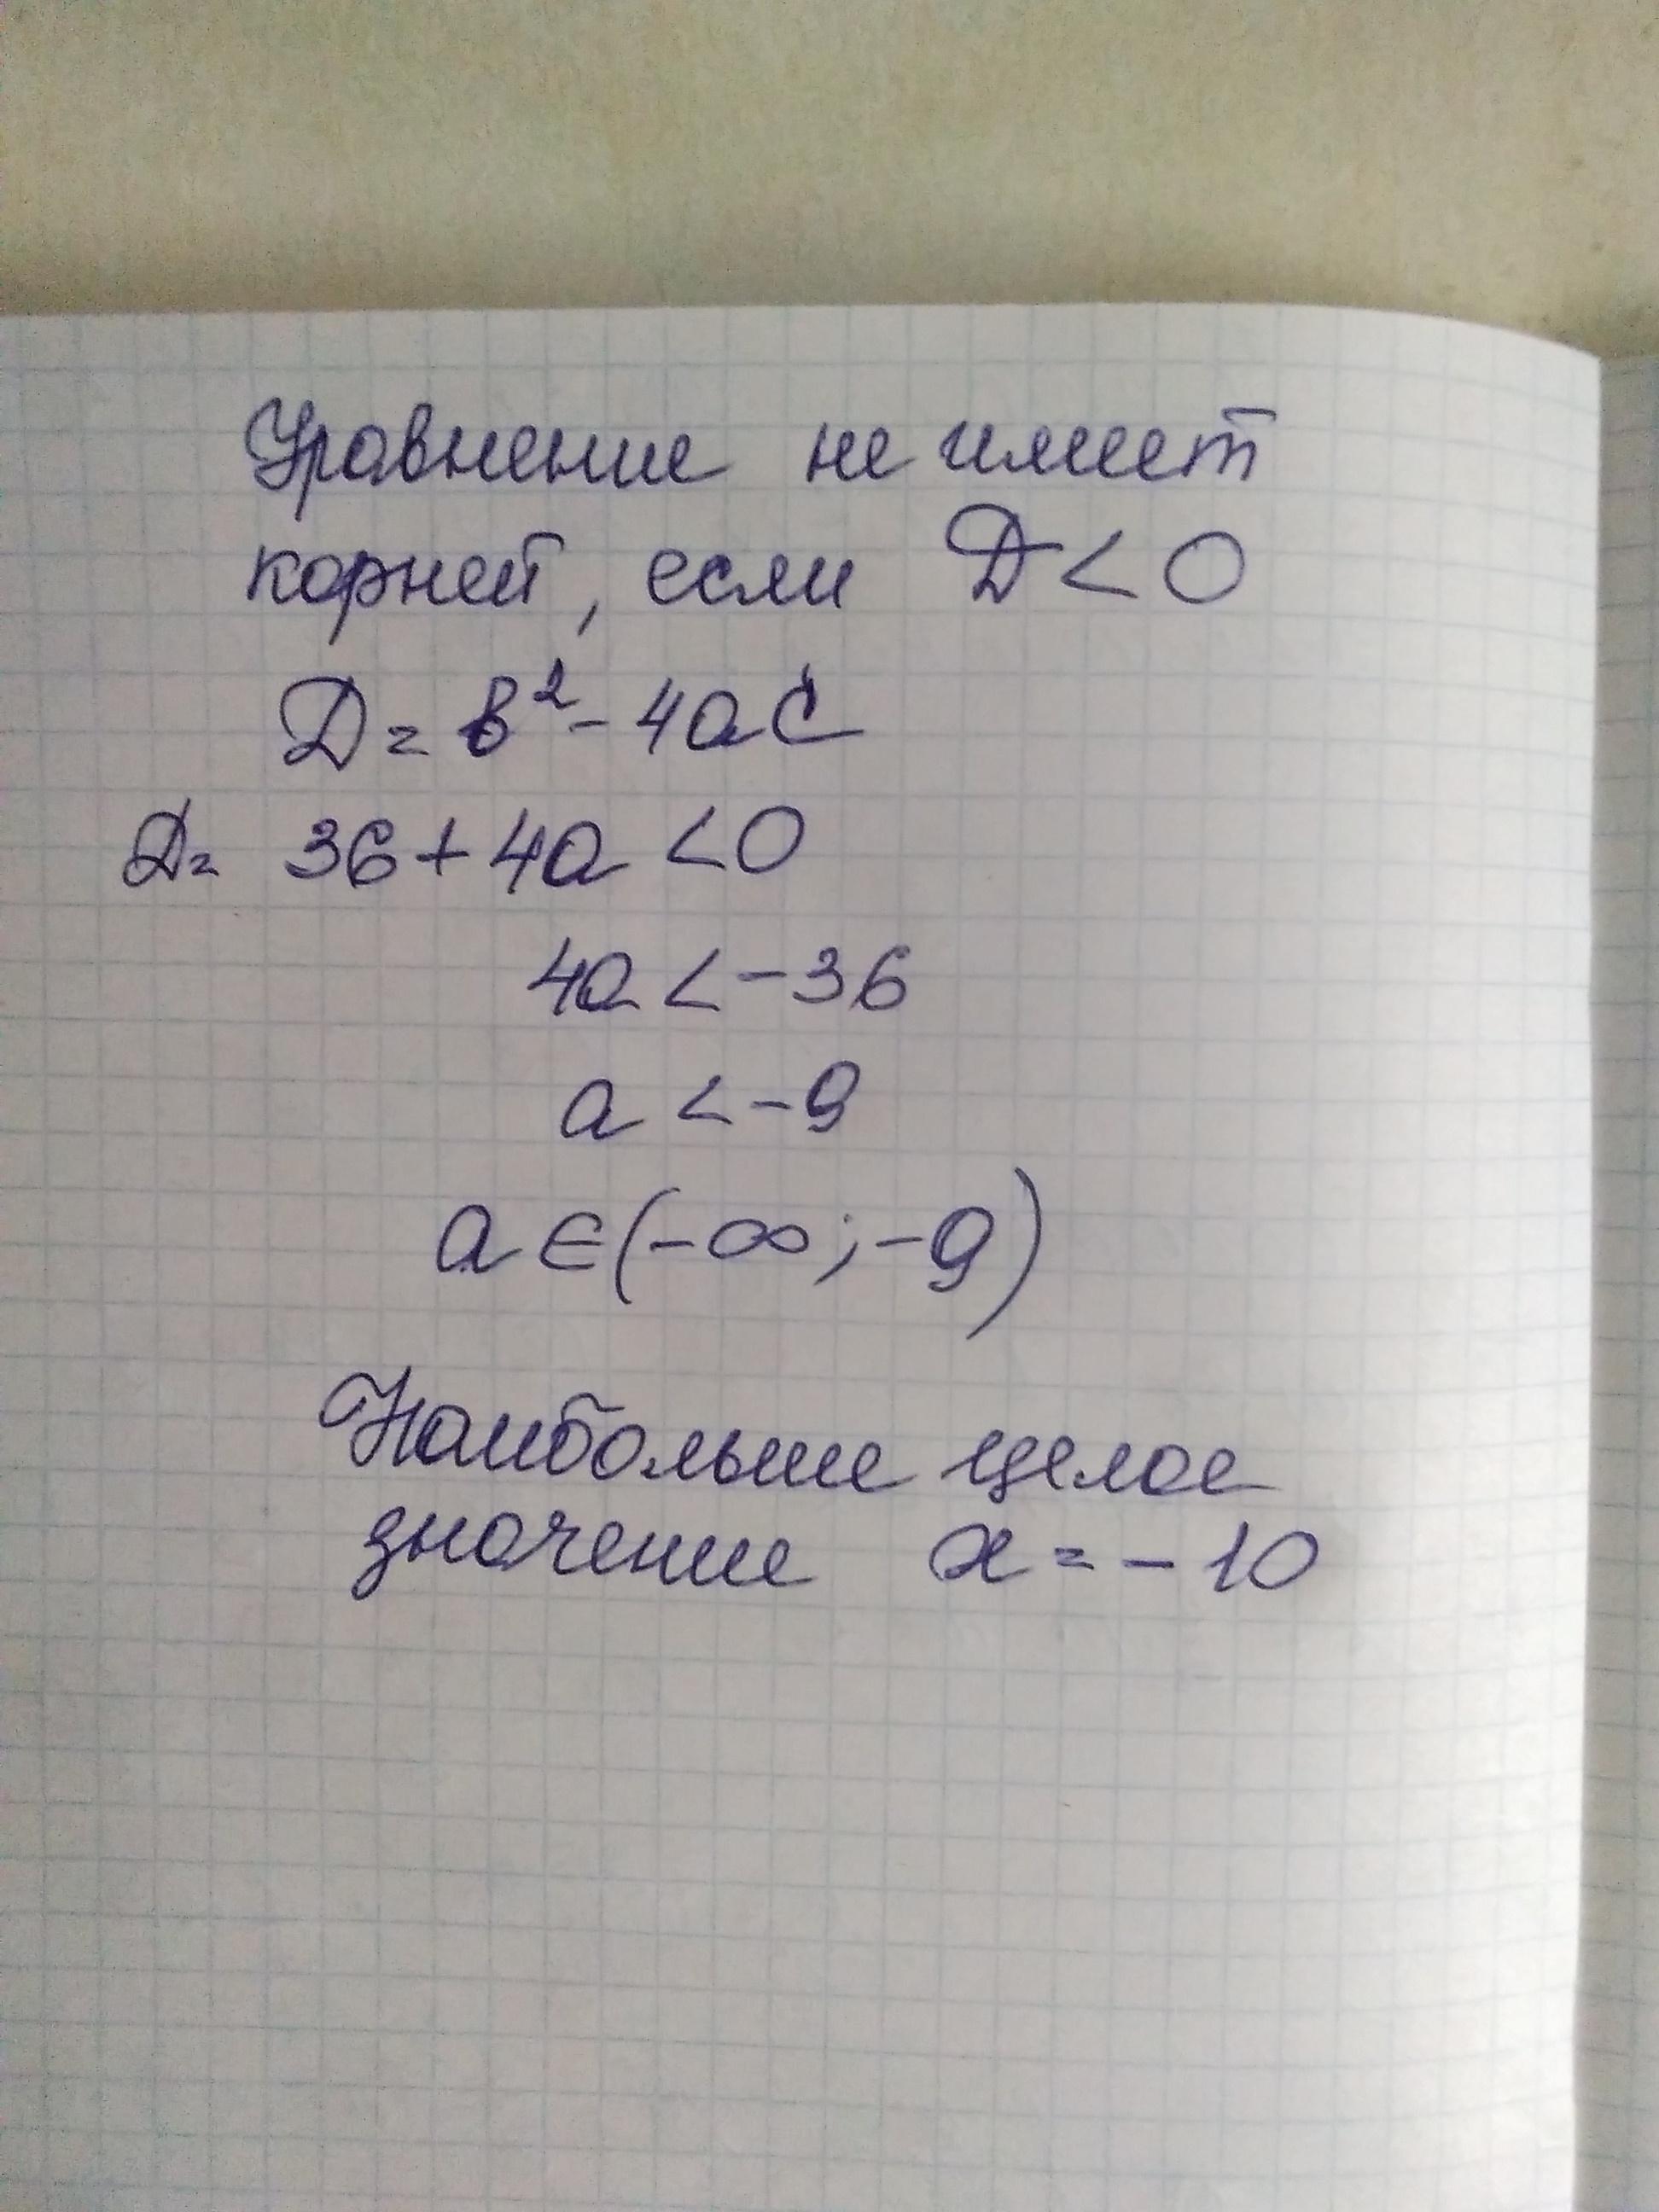 Уравнение не имеет
корней, если D < 0
D = b² - 4ac
D = 36 + 4a < 0
4a < -36
a < -9
a ∈ (-∞; -9)
Наибольшее целое
значение x = -10